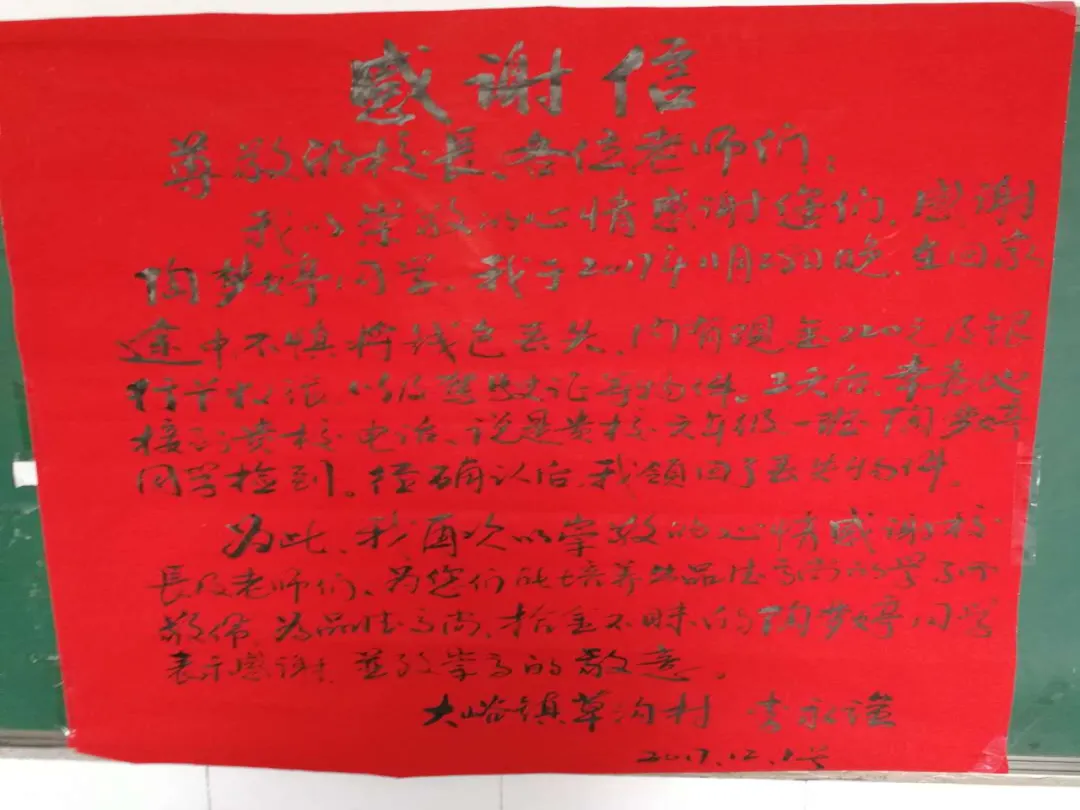 感谢信
尊敬的校長、各位老师们:
我以崇敬的心情感谢您们,感谢
陶梦婷同学。我于2017年11月28日晚,在回家
途中不慎将钱包丢失,内有现金220元及银
行卡权证,以及驾驶证等物件。三天后,幸喜地
接到贵校电话,说是贵校六年级一班陶梦婷
同学捡到。经确认后,我领回了丢失物件。
为此,我再次以崇敬的心情感谢校
長及老师们,为您们能培养出品德高尚的学子而
敬佩,为品德高尚、拾金不昧的陶梦婷同学
表示感谢,並致崇高的敬意。
大峪镇草沟村 李永谨
2017.12.1号